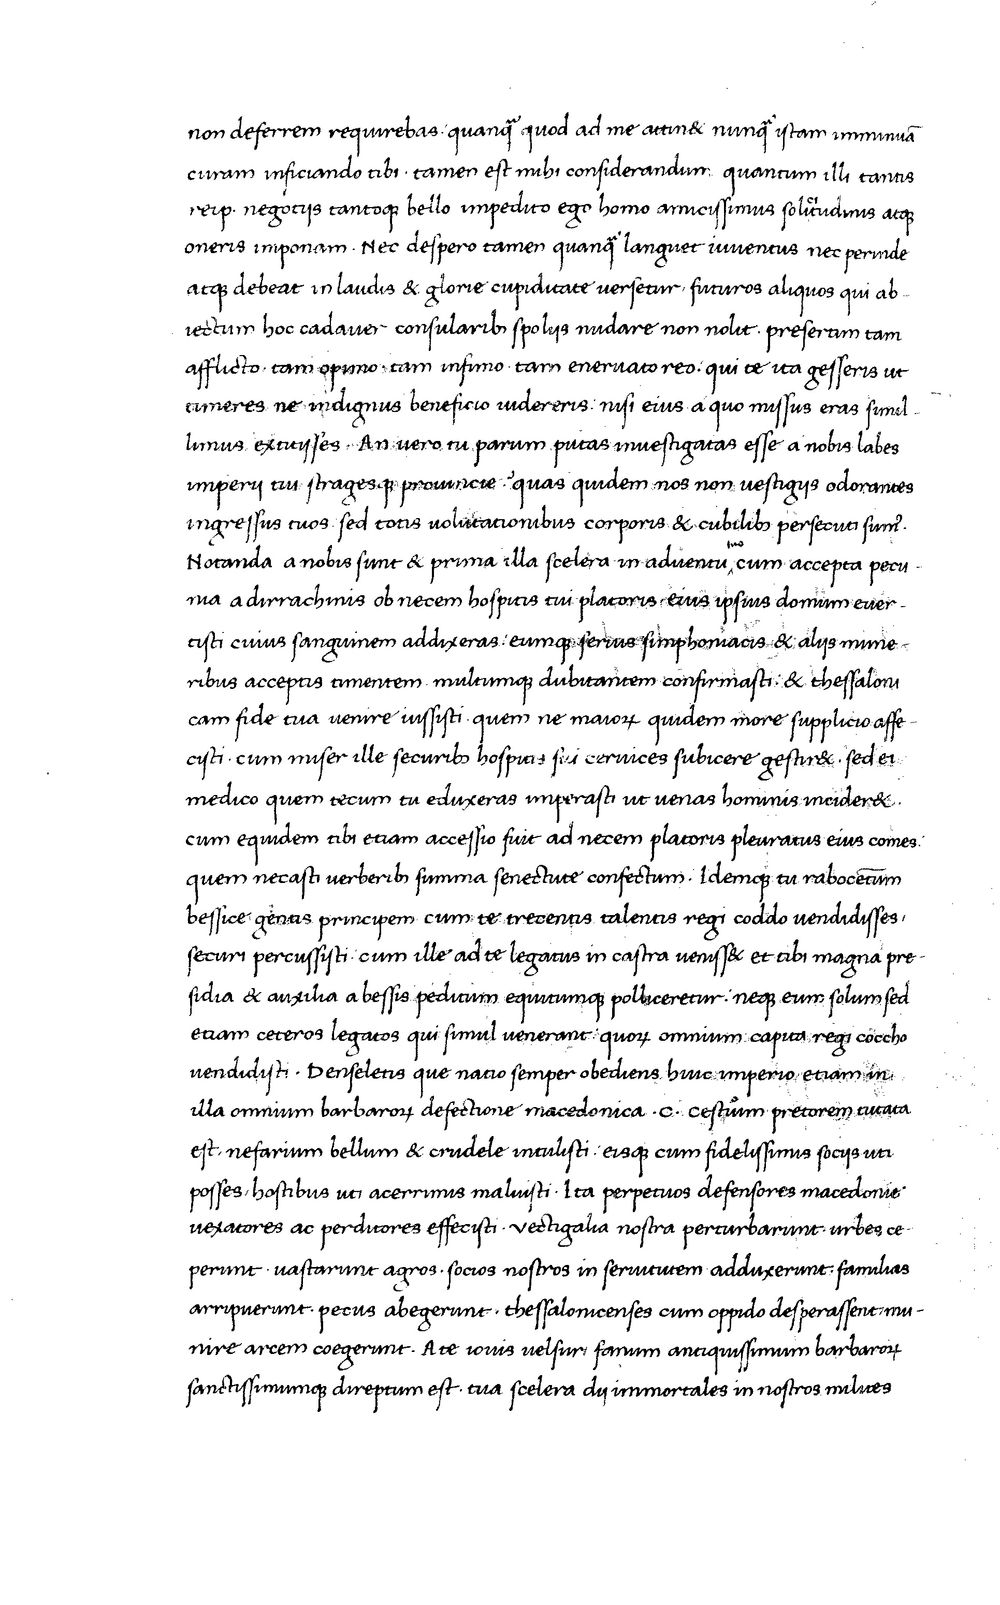 non deferrem requirebas. quanq̃ quod ad me attin& nunq̃ istam imminuã
curam inficiando tibi. tamen est mihi considerandum quantum illi tantis
reip. negotijs tantoq; bello impedito ego homo amicissimus solitudinis atq;
oneris imponam. Nec despero tamen quanq̃ languet iuventus nec perinde
atq; debeat in laudis & glorie cupiditate versetur, futuros aliquos qui ab-
iectum hoc cadaver consularib; spolijs nudare non nolit. presertim tam
afflicto. tam opimo. tam infimo. tam enervato reo. qui te ita gesseris ut
timeres ne indignus beneficio videreris. nisi eius a quo missus eras simil-
limus extitisses. An vero tu parum putas investigatas esse a nobis labes
imperij tui stragesq; provincie? quas quidem nos non vestigijs odorantes
ingressus tuos. sed totis volutationibus corporis & cubilib; persecuti sum̃.
Notanda a nobis sunt & prima illa scelera in adventu cum accepta pecu-
nia a dirrachinis ob necem hospitis tui platoris. eius ipsius domum ever-
tisti cuius sanguinem addixeras. eumq; servis simphoniacis & alijs mune-
ribus acceptis timentem multumq; dubitantem confirmasti. & thessaloni
cam fide tua venire iussisti. quem ne maioꝝ quidem more supplicio affe-
cisti. cum miser ille securib; hospitis sui cervices subicere gestir&. sed ei
medico quem tecum tu eduxeras imperasti ut venas hominis incider&.
cum equidem tibi etiam accessio fuit ad necem platoris pleuratus eius comes.
quem necasti verberib; summa senectute confectum. Idemq; tu rabocetũm
bessice gentis principem cum te trecentis talentis regi coddo vendidisses,
securi percussisti. cum ille ad te legatus in castra veniss& et tibi magna pre-
sidia & auxilia a bessis peditum equitumq; polliceretur. neq; eum solum sed
etiam ceteros legatos qui simul venerant. quoꝝ omnium capita regi coccho
vendidisti. Denseletis que natio semper obediens huic imperio etiam in
illa omnium barbaroꝝ defectione macedonica .C. Cestium pretorem tutata
est, nefarium bellum & crudele intulisti. eisq; cum fidelissimus socijs uti
posses, hostibus uti acerrimis maluisti. Ita perpetuos defensores macedonie
vexatores ac perditores effecisti. Vectigalia nostra perturbarunt. urbes ce-
perunt. vastarunt agros. socios nostros in servitutem adduxerunt. familias
arripuerunt. pecus abegerunt. thessalonicenses cum oppido desperassent, mu-
nire arcem coegerunt. A te iovis velsuri fanum antiquissimum barbaroꝝ
sanctissimumq; direptum est. tua scelera dij immortales in nostros milites